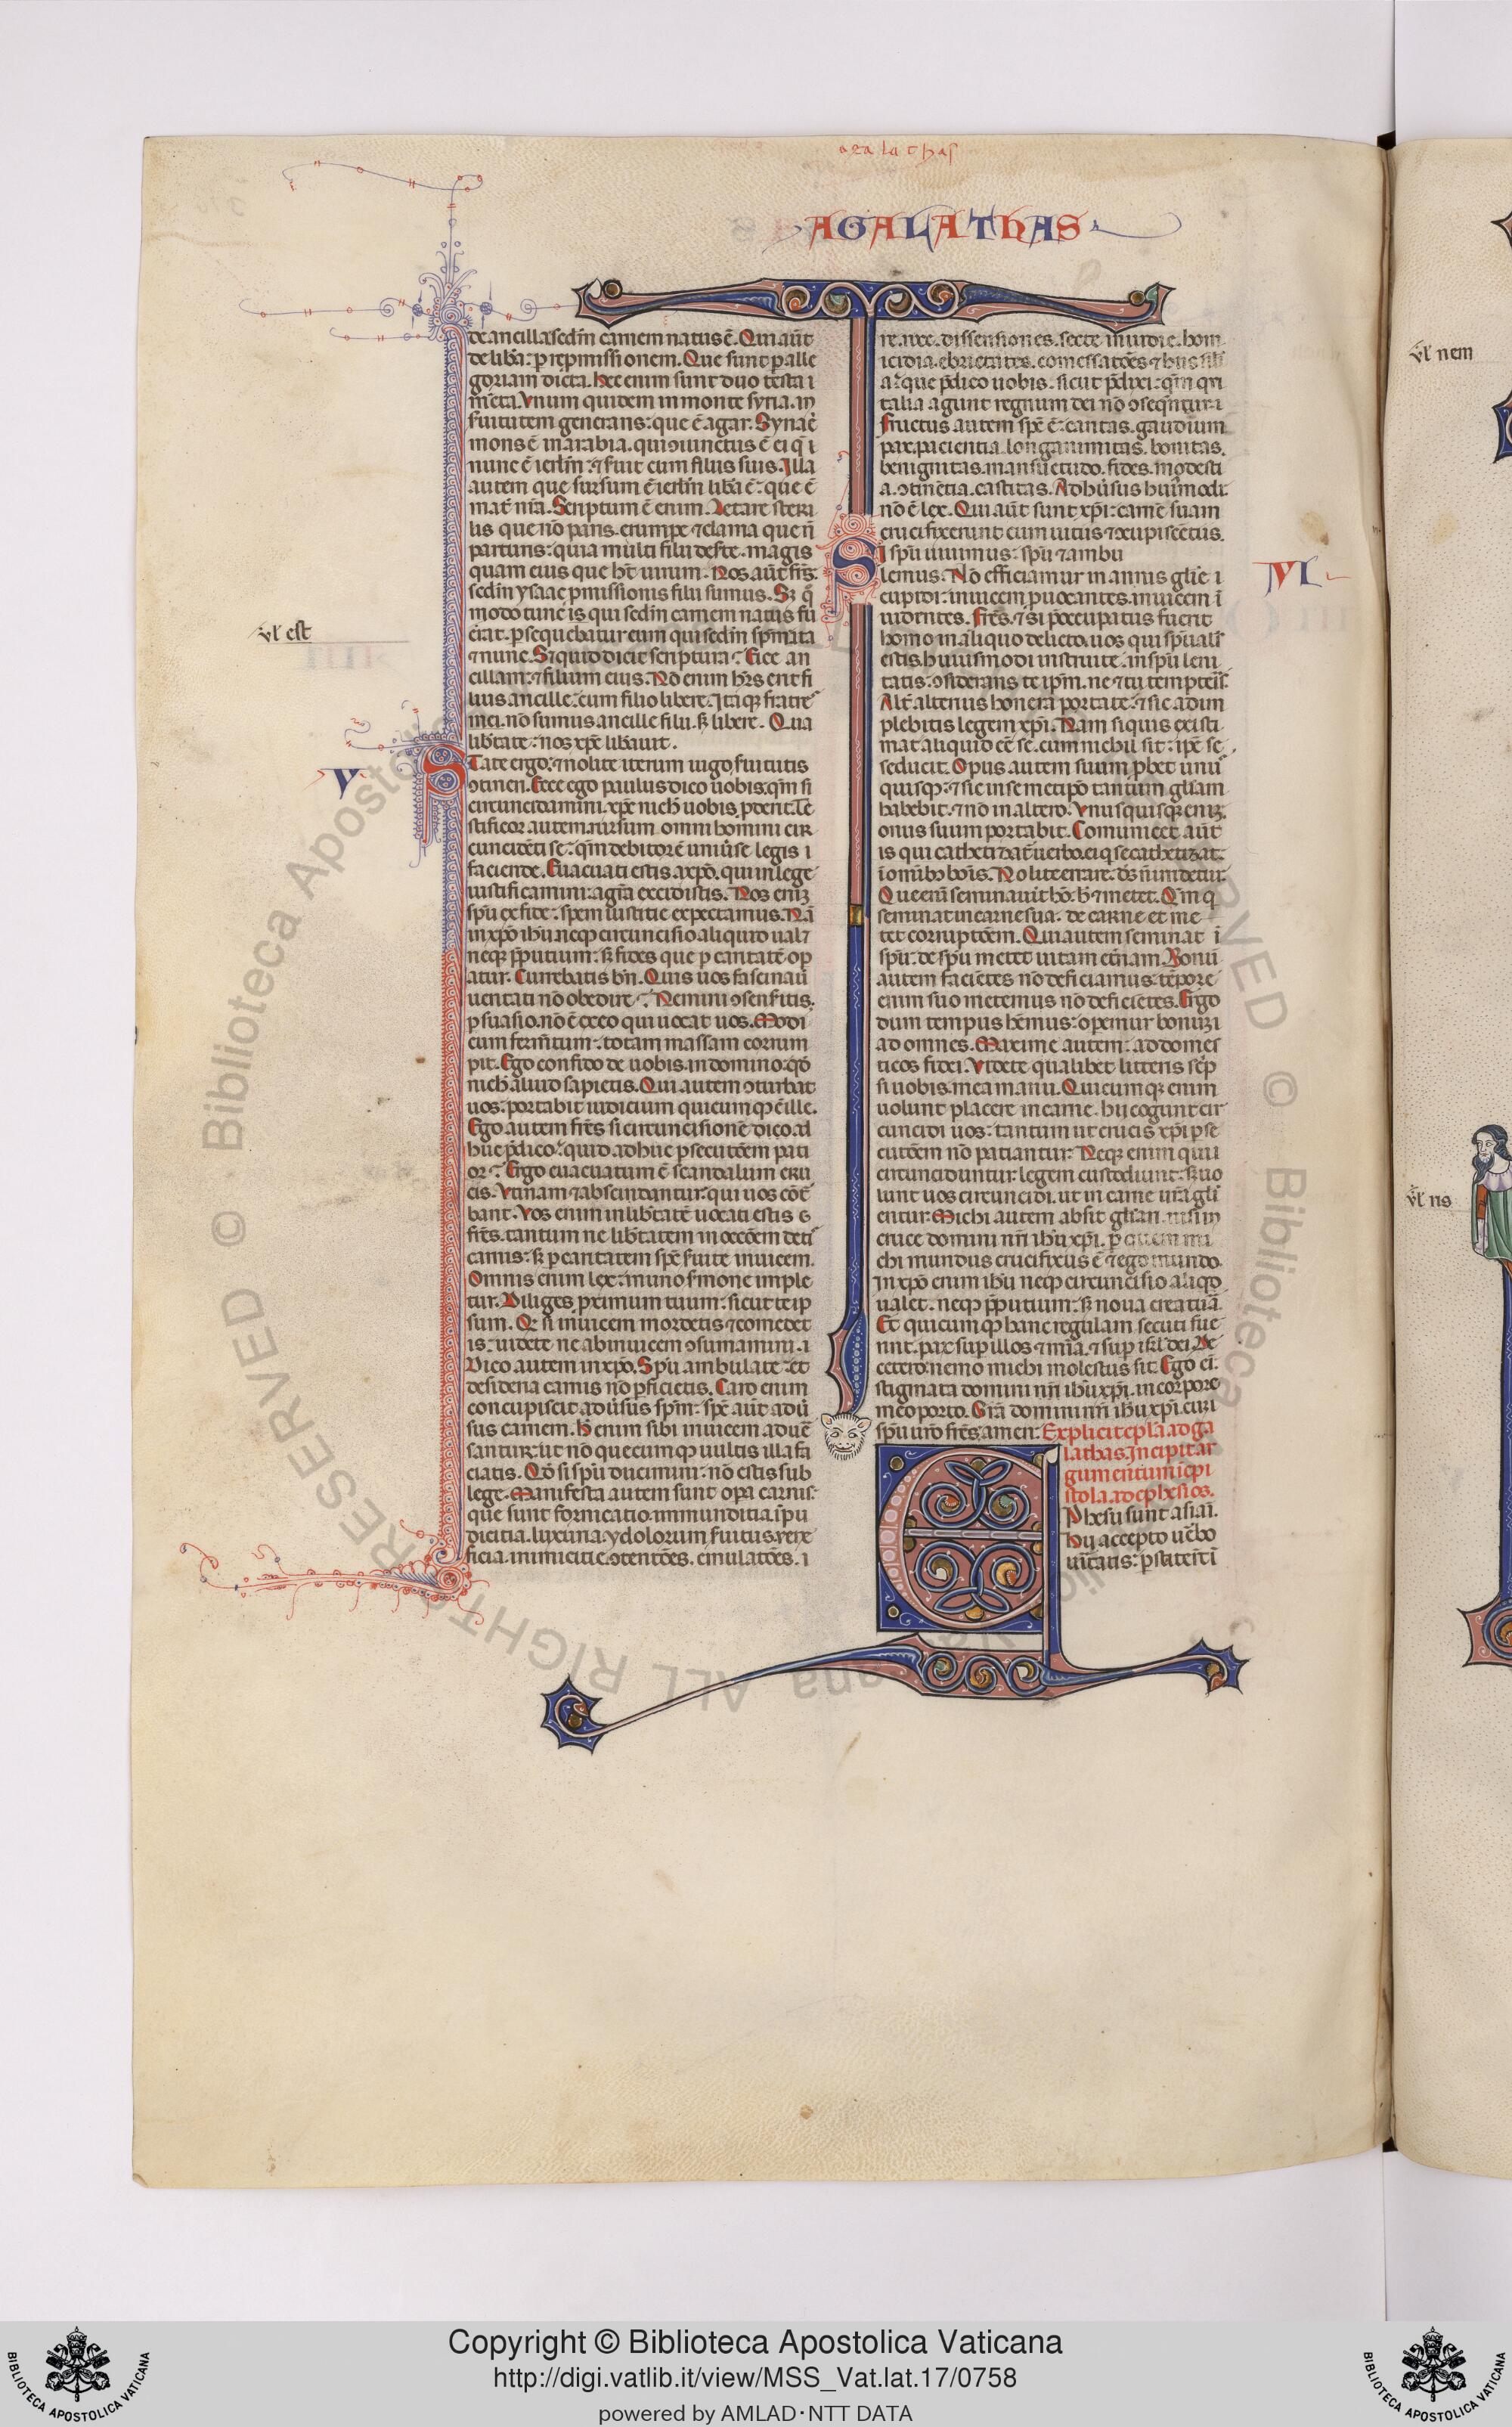 agalathas
AGALATHAS
de ancilla: sedm̄ carnem natus ē. Qui aut̄
de libera: per repromissionem. Que sunt per alle
goriam dicta. Hec enim sunt duo testa
menta. Unum quidem in monte syna. in
seruitutem generans: que ē agar. Syna ē
mons ē in arabia. qui ↄiunctus ē ei q̄
nunc ē ierlm̄: ⁊ seruit cum filiis suis. Illa
autem que sursum ē ierlm̄ libera ē: que ē
mat̄ nr̄a. Scriptum ē enim. Letare steri
lis que nō paris. erumpe ⁊ clama que n̄
parturis: quia multi filii deserte. magis
quam eius que hēt uirum. Nos aut̄ fr̄s.
sedm̄ ysaac ꝓmissionis filii sumus. Sꝫ qm̊
modo tunc is qui sedm̄ carnem natus fu
erat. ꝑsequebatur eum qui sedm̄ spm̄: ita
⁊ nunc. Sꝫ quid dicit scriptura? Eice an
cillam: ⁊ filium eius. Nō enim heres erit fi
lius ancille: cum filio libere. Itaqꝫ fratres
mei. nō sumus ancille filii. sꝫ libere. Qua
libertate: nos xp̄c liberauit.
State ergo: ⁊ nolite iterum iugo seruitutis
ↄtineri. Ecce ego paulus dico uobis. qm̄ si
circumcidamini. xp̄c nich̄ uobis ꝓderit. Te
stificor autem rursum omni homini cir
cuncidēti se: qm̄ debitor ē uniuerse legis
faciende. Euacuati estis a xp̄o. qui in lege
iustificamini: a gr̄a excidistis. Nos enim
spū ex fide: spem iustitie expectamus. Nā
in xp̄o ihū neqꝫ circuncisio aliquid ualet
neqꝫ p̄putium: sꝫ fides que ꝑ caritatē op
atur. Currebatis bn̄. Quis uos fascinauit
ueritati nō obedire? Nemini ↄsenseritis:
ꝑsuasio. nō ē ex eo qui uocat uos. Modi
cum ferm̄tum: totam massam corrum
pit. Ego confido de uobis in domino: qd̊
nich̄ aliud sapietis. Qui autem ↄturbat
uos: portabit iudicium quicumqꝫ ē ille.
Ego autem fr̄s si circuncisionē dico ad
huc p̄dico: quid adhuc ꝑsecutōem pati
or? Ergo euacuatum ē scandalum cru
cis. Utinam ⁊ abscindantur: qui uos cōtur
bant. Uos enim in libertatē uocati estis
fr̄s. tantum ne libertatem in occōem detis
carnis: sꝫ ꝑ caritatem spc̄ seruite inuicem.
Omnis enim lex: in uno sermone imple
tur. Diliges proximum tuum: sicut te ip
sum. Qd̊ si inuicem mordetis ⁊ comedet
is: uidete ne ab inuicem ↄsumamini.
Dico autem in xp̄o. Spū ambulate: et
desideria carnis nō ꝑficietis. Caro enim
concupiscit aduersus spm̄: spc̄ aut̄ aduer
sus carnem. Hec enim sibi inuicem aduer
santur: ut nō quecumqꝫ uultis illa fa
ciatis. Qd̊ si spū ducimini: nō estis sub
lege. Manifesta autem sunt opera carnis:
que sunt fornicatio. inmunditia. impu
dicitia. luxuria. ydolorum seruitus. uene
ficia. inimicitie. ↄtentōes. emulatōes.
ire. rixe. dissensiones. secte. inuidie. hom
icidia. ebrietates. comessatōes. ⁊ hiis sil̄i
a: que p̄dico uobis. sicut p̄dixi: qm̄ qui
talia agunt regnum dei nō ↄsequentur.
Fructus autem spc̄ ē: caritas. gaudium
pax. pacientia. longanimitas. bonitas.
benignitas. mansuetudo. fides. modesti
a. ↄtinētia. castitas. Aduersus huiusmodi:
nō ē lex. Qui aut̄ sunt xp̄i: carnē suam
crucifixerunt cum uitiis ⁊ ↄcupiscētiis.
Si spū uiuimus: spū ⁊ ambu
lemus. Nō efficiamur inanis gl̄ie
cupidi: inuicem ꝓuocantes. inuicem in
uidentes. Fr̄s. ⁊ si p̄occupatus fuerit
homo in aliquo delicto. uos qui spūales
estis. huiusmodi instruite in spū leni
tatis: ↄsiderans te ip̄m. ne ⁊ tu tempteris.
Alt̄ alterius honera portate: ⁊ sic adim
plebitis legem xp̄i. Nam si quis existi
mat aliquid eē se. cum nichil sit: ip̄e se
seducit. Opus autem suum ꝓbet unus
quisqꝫ: ⁊ sic in semetipō tantum gl̄iam
habebit. ⁊ nō in altero. Unusquisqꝫ enim
onus suum portabit. Comunicet aut̄
is qui cathetizat̄ uerbo. ei q̇ se cathetizat:
in omībꝫ bonis. Nolite errare. ds̄ n̄ irridetur.
Que enī seminauit hō: hec ⁊ metet. Qm̄ q̇
seminat in carne sua: de carne et me
tet corruptōem. Qui autem seminat in
spū: de spū metet uitam etn̄am. Bonū
autem faciētes nō deficiamus: tēpore
enim suo metemus nō deficiētes. Ergo
dum tempus hēmus: operemur bonum
ad omnes. Maxime autem: ad domes
ticos fidei. Videte qualibꝫ litteris sc̄p
si uobis. mea manu. Quicumqꝫ enim
uolunt placere in carne. hii cogunt cir
cuncidi uos: tantum ut crucis xp̄i ꝑse
cutōem nō patiantur: Neqꝫ enim qui
circunciduntur: legem custodiunt: sꝫ uo
lunt uos circuncidi. ut in carne ur̄a gl̄i
entur. Michi autem absit gl̄iari. nisi in
cruce domini nr̄i ihū xp̄i. ꝑ quem mi
chi mundus crucifixus ē ⁊ ego mundo.
In xp̄o enim ihū neqꝫ circuncisio aliqd̊
ualet. neqꝫ p̄putium: sꝫ noua creatura.
Et quicumqꝫ hanc regulam secuti fue
rint. pax suꝑ illos ⁊ mīa. ⁊ suꝑ isrl̄ dei. De
cetero: nemo michi molestus sit. Ego ēi.
stigmata domini nr̄i ihū xp̄i. in corpore
meo porto. Gr̄a domini nr̄i ihū xp̄i. cum
spū ur̄o fr̄s. amen. Explicit epl̄a ad ga
lathas. Incipit ar
gumentum in epi
stola. ad ephesios.
Ephesii sunt asiani.
hii accepto uerbo
ueritatis: ꝑstiterūt in
ul̄ est
V
VI
ul̄ nem
ul̄ ns
© Biblioteca Apostolica Vaticana ALL RIGHTS RESERVED
Copyright © Biblioteca Apostolica Vaticana
http://digi.vatlib.it/view/MSS_Vat.lat.17/0758
powered by AMLAD·NTT DATA
BIBLIOTECA APOSTOLICA VATICANA
BIBLIOTECA APOSTOLICA VATICANA